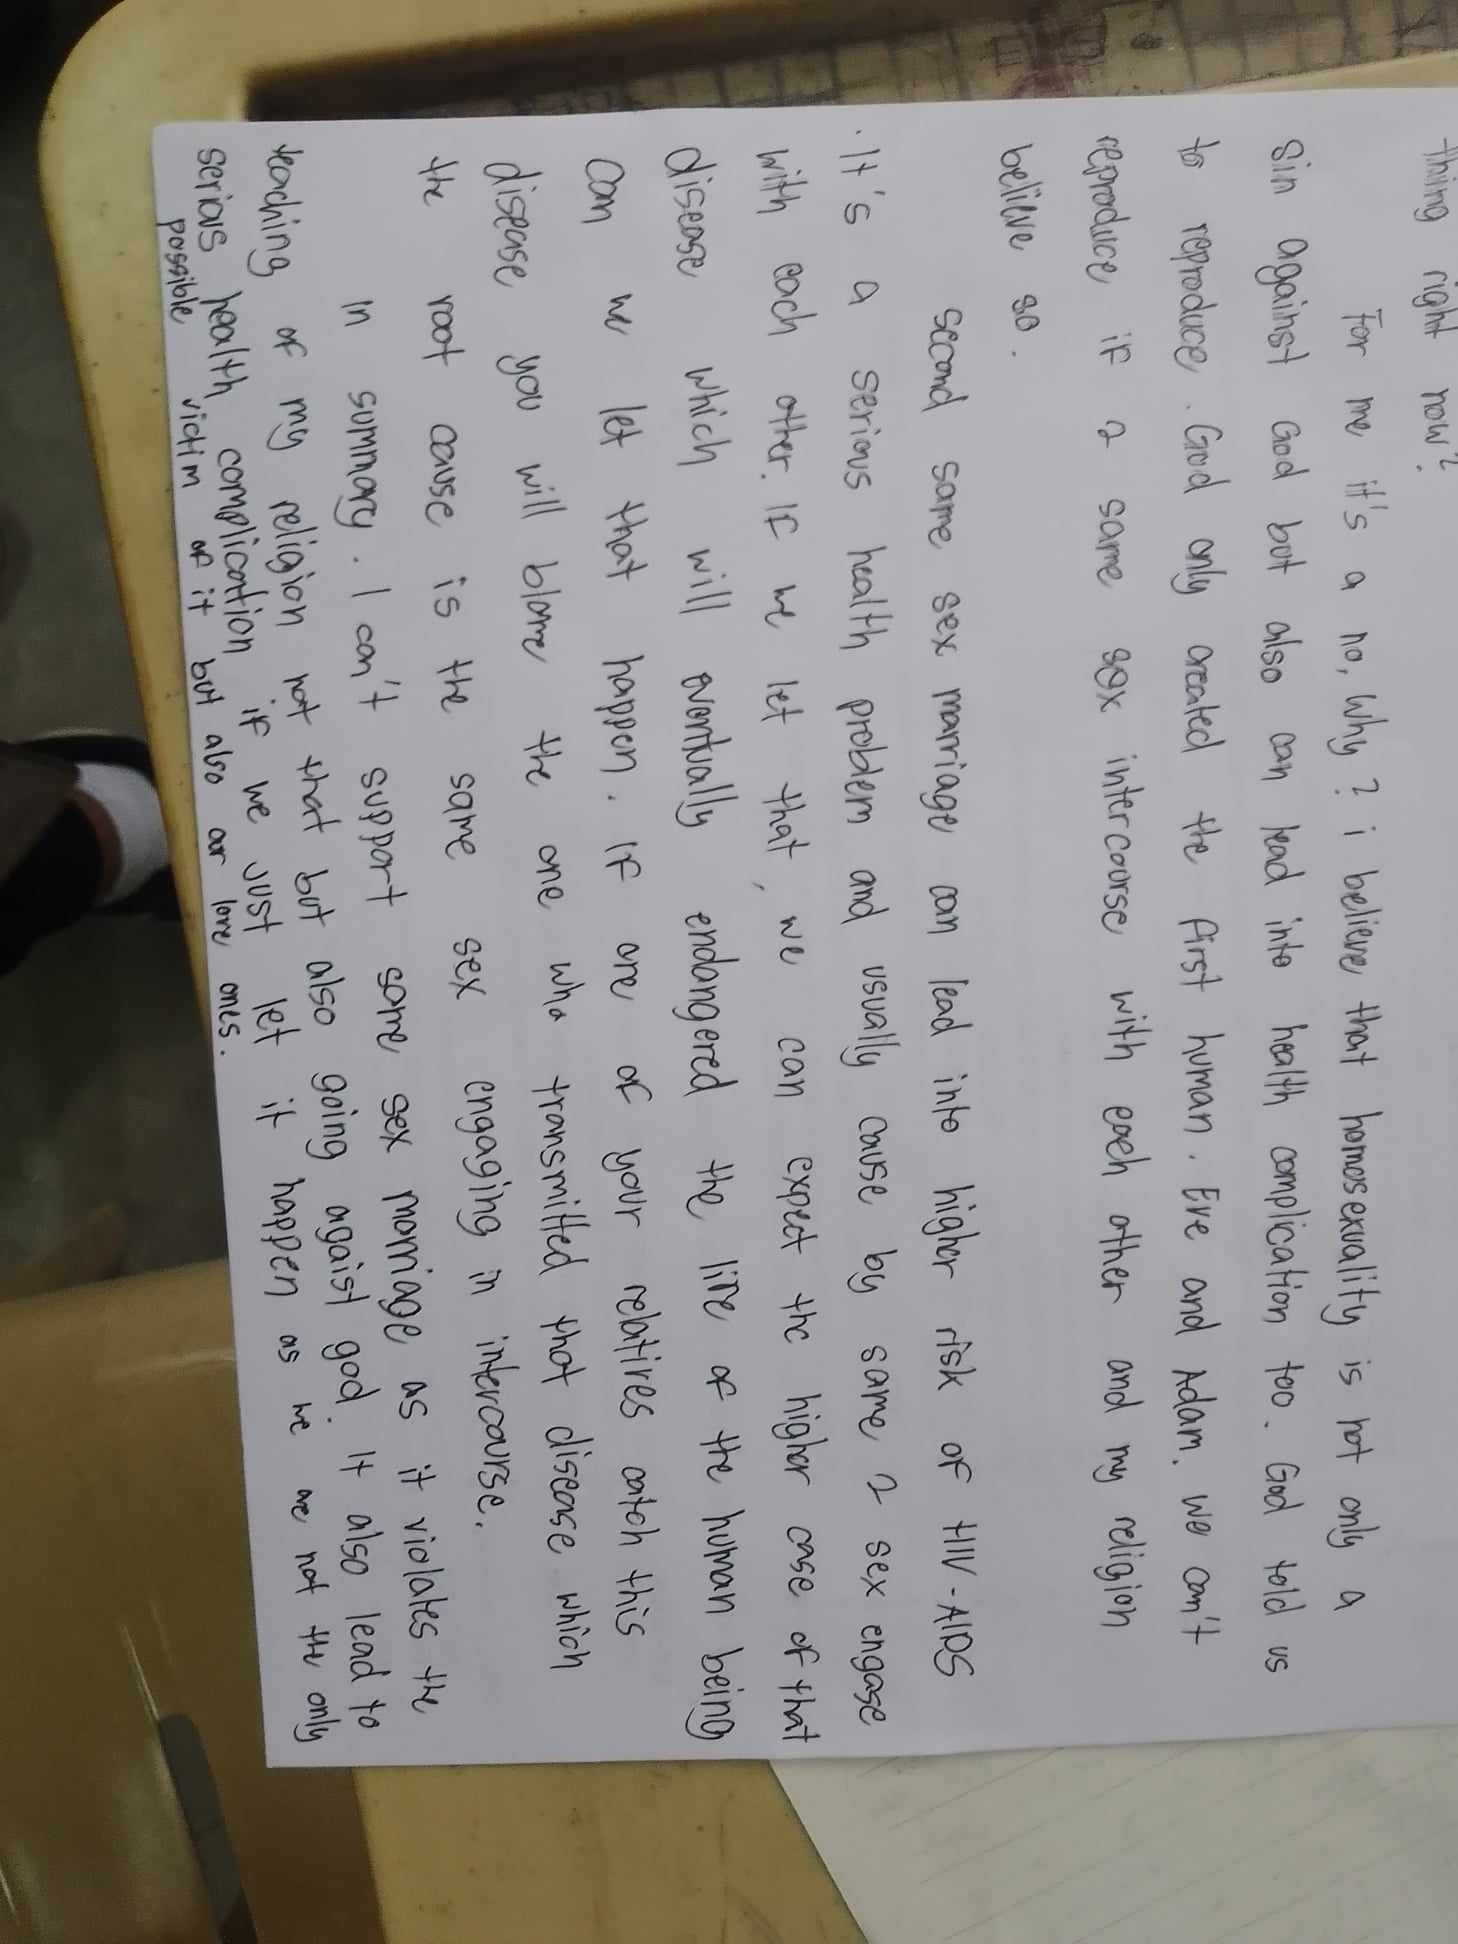 thing right now?
For me it's a no, Why? i believe that homosexuality is not only a
sin against God but also can lead into health complication too. God told us
to reproduce. God only created the first human. Eve and Adam. we can't
reproduce if 2 same sex intercourse with each other and my religion
believe so.
Second same sex marriage can lead into higher risk of HIV-AIDS
. It's a serious health problem and usually cause by same 2 sex engase
with each other. If we let that, we can expect the higher case of that
disease which will eventually endangered the life of the human being
can we let that happen. If one of your relatives catch this
disease you will blame the one who transmitted that disease which
the root cause is the same sex engaging in intercourse.
In summary. I can't support same sex marriage as it violates the
teaching of my religion not that but also going agaist god. It also lead to
serious health complication if we just let it happen as we are not the only
possible victim of it but also our love ones.